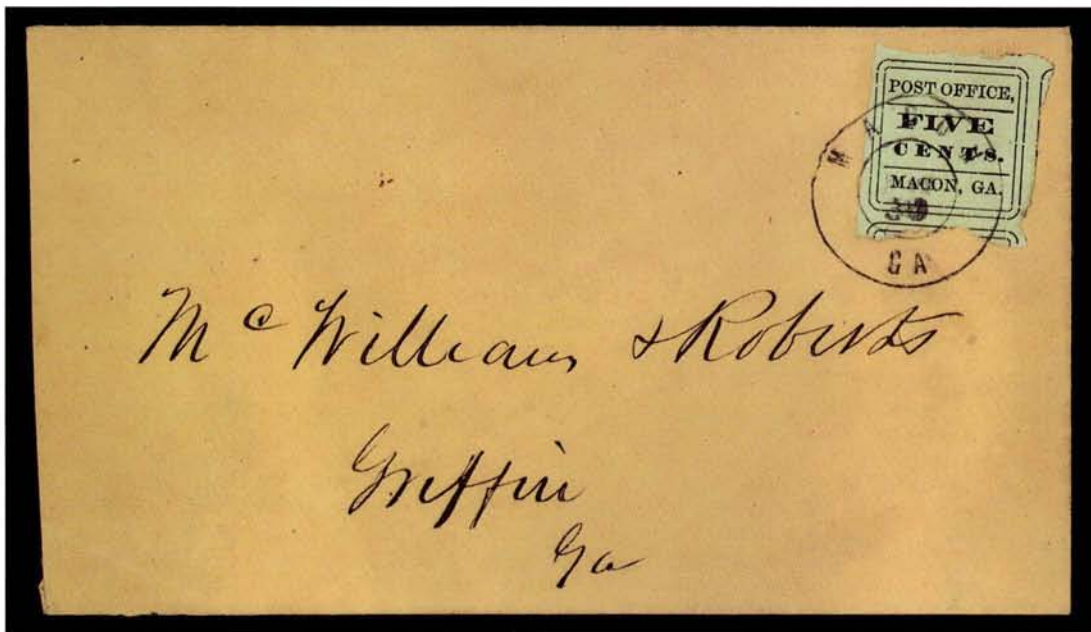 POST OFFICE,
FIVE
CENTS.
MACON, GA.
GA
McWilliams & Roberts
Griffin
Ga